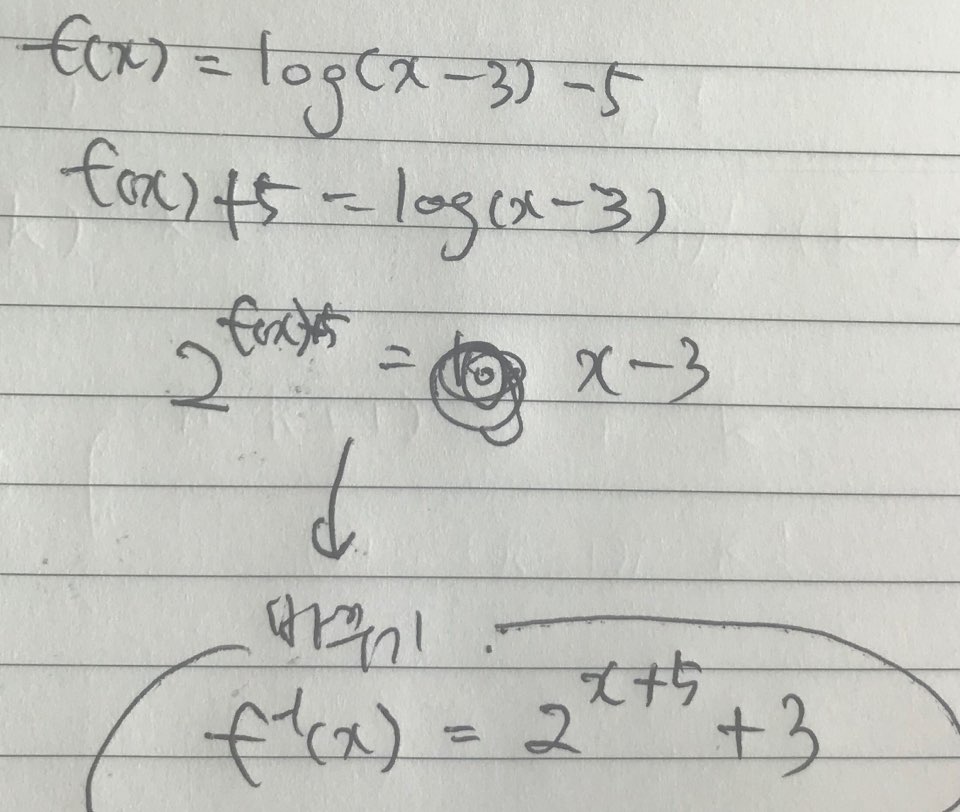 f(x) = log(x-3) -5
f(x) +5 = log(x-3)
2^{f(x)+5} = x-3
↓
바꾸기
f^{-1}(x) = 2^{x+5} +3